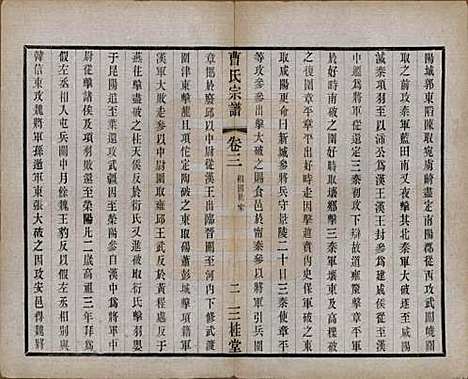 陽城郭東陷陳取宛虜齮盡定南陽郡從西攻武關嶢關
取之前攻秦軍藍田南又夜擊其北秦軍大破遂至咸陽
滅秦項羽至以沛公爲漢王漢王封參爲建成侯從至漢
中遷爲將軍從還定三秦初攻下辯故道雍斄擊章平軍
於好畤南破之圍好畤取壤鄉擊三秦軍壤東及高櫟破
之復圍章平章平出好畤走因擊趙賁內史保軍破之東
取咸陽更命曰新城參將兵守景陵二十日三秦使章平
等攻參參出擊大破之賜食邑於寧秦參以將軍引兵圍
曹氏宗譜 卷三 相國世家 二 三桂堂
章邯於廢邱以中尉從漢王出臨晉關至河內下修武渡
圍津東擊龍且項他定陶破之東取碭蕭彭城擊項籍軍
漢軍大敗走參以中尉圍取雍邱王武反於黃程處反於
燕往擊盡破之柱天侯反於衍氏又進破取衍氏擊羽嬰
於昆陽追至葉還攻武彊因至滎陽參自漢中爲將軍中
尉從擊諸侯及項羽敗還至滎陽凡二歲高祖三年拜爲
假左丞相入屯兵關中月餘魏王豹反以假左丞相別與
韓信東攻魏將軍孫遫軍東張大破之因攻安邑得魏將